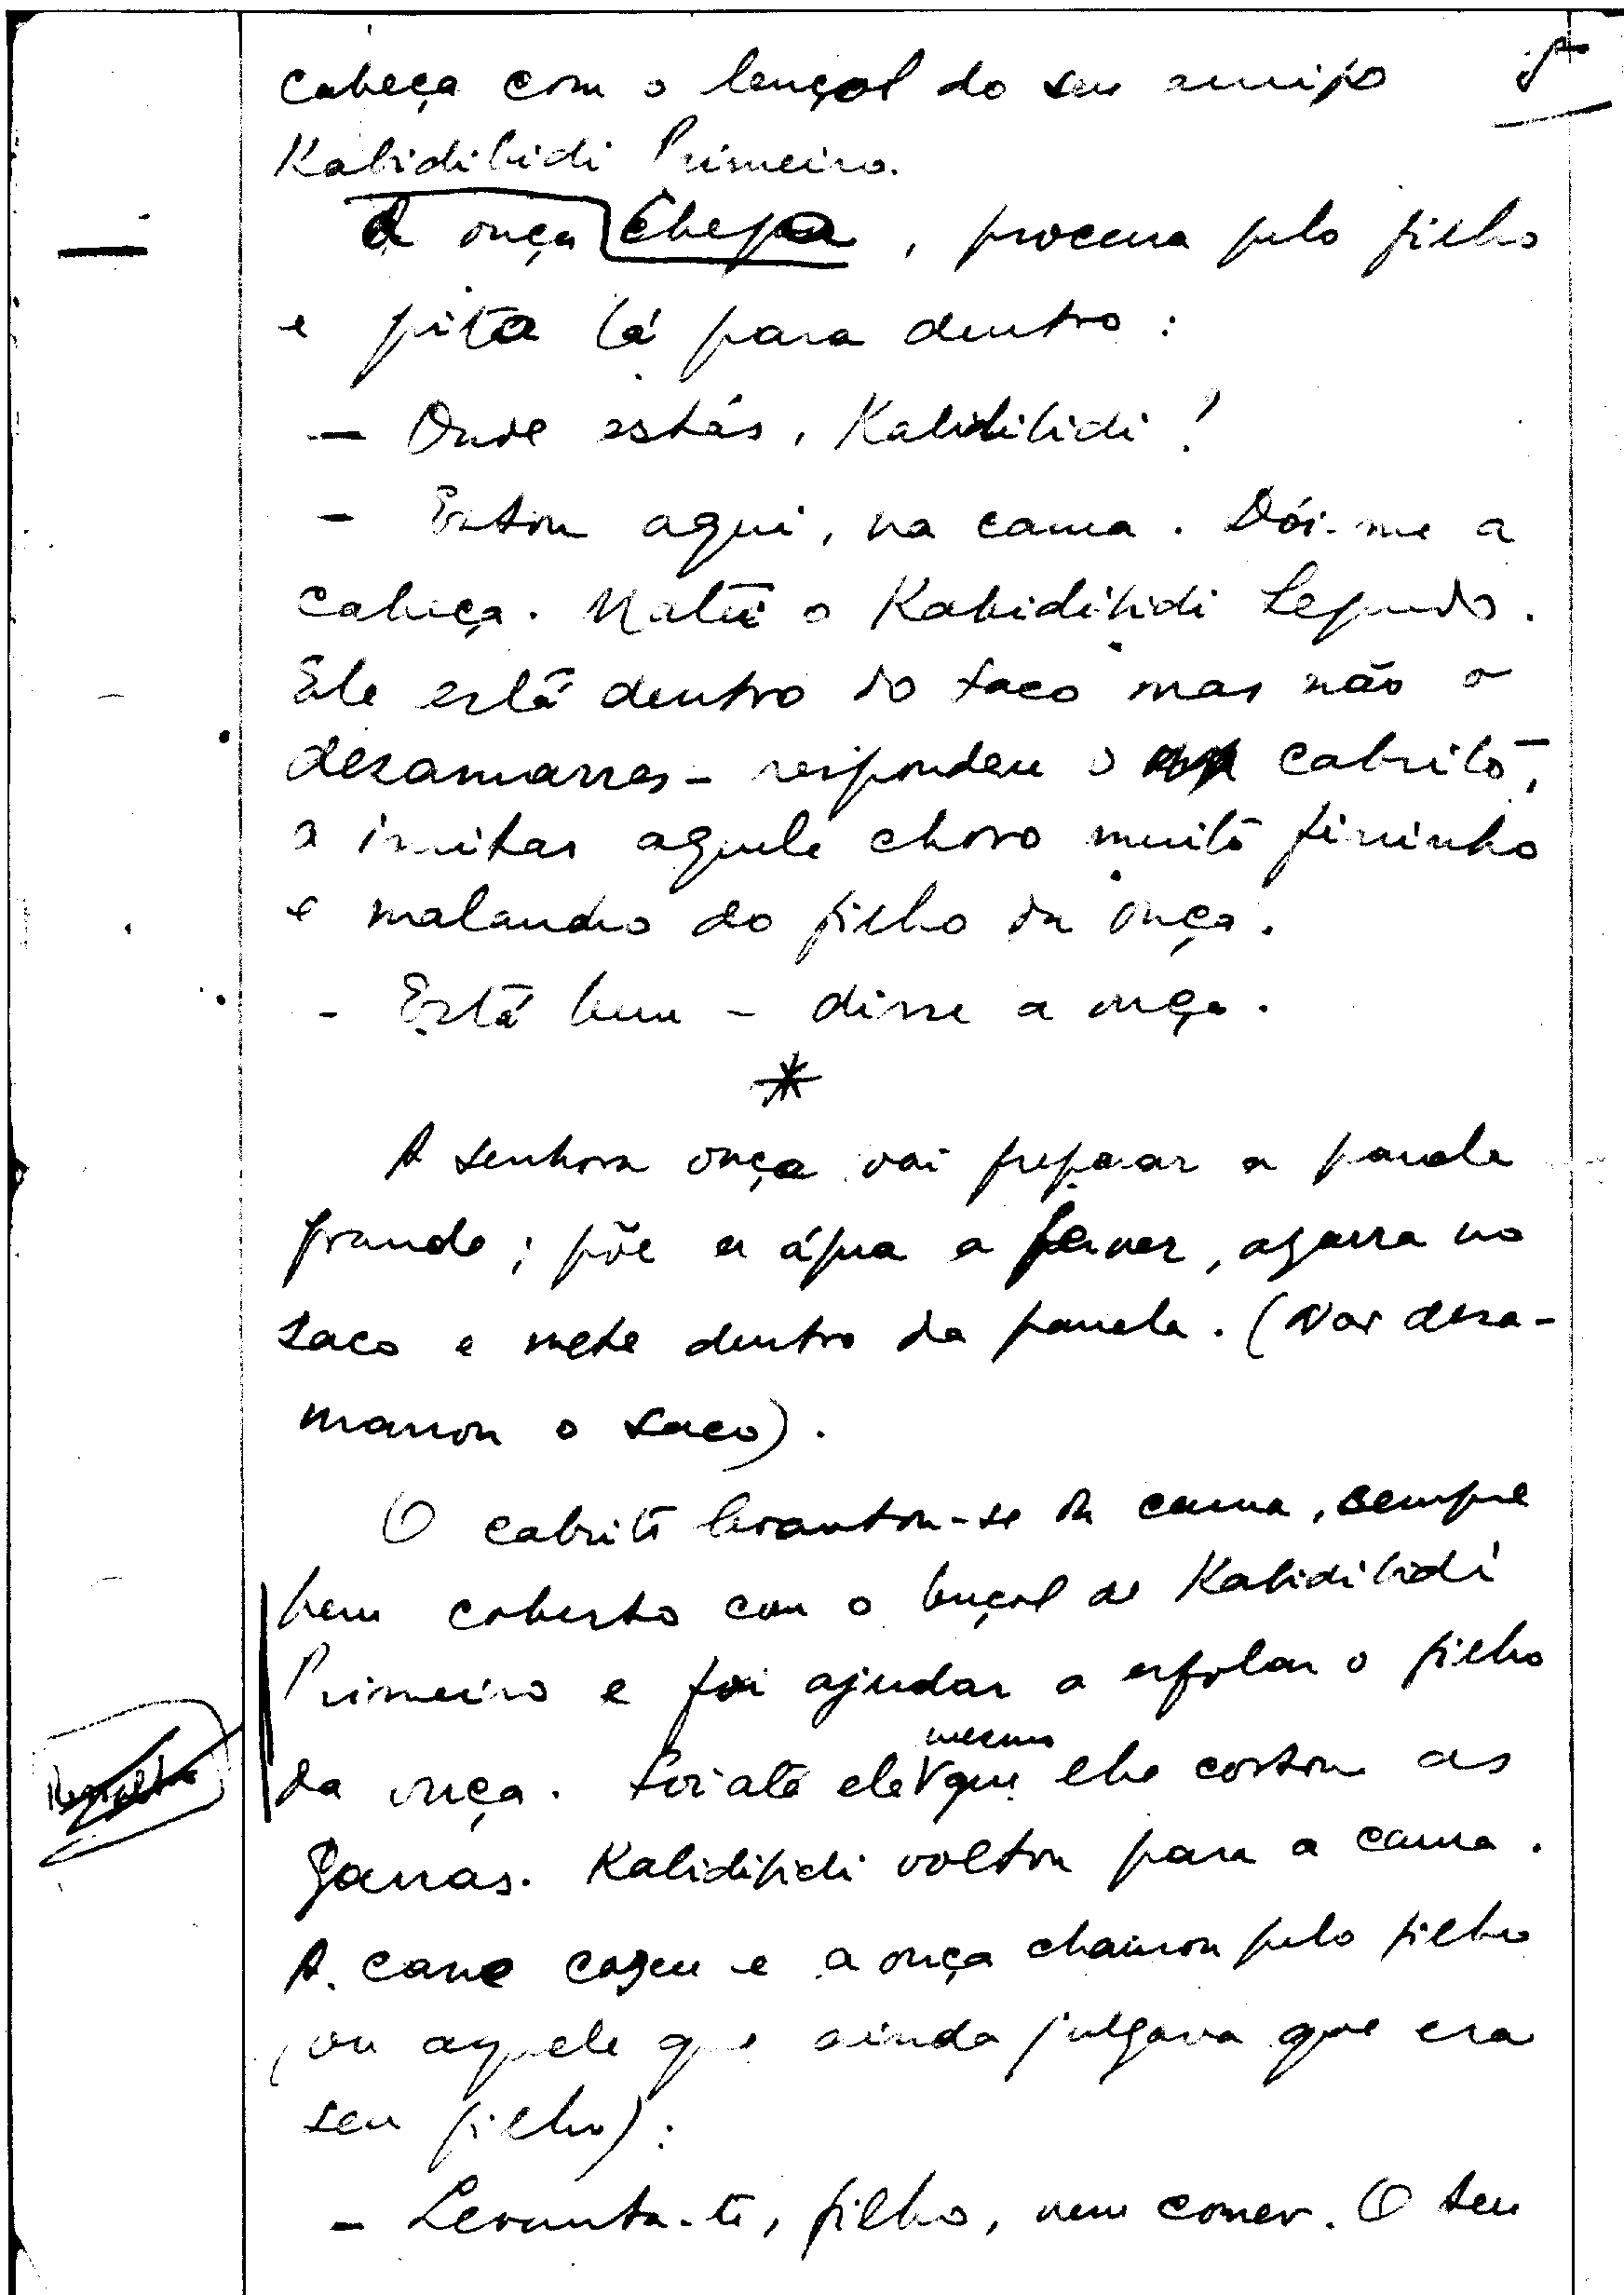 cabeça com o lençol do seu amigo
Kabidibidi Primeiro.
A onça chega, procura pelo filho
e grita lá para dentro:
— Onde estás, Kabidibidi?
— Estou aqui, na cama. Dói-me a
cabeça. Matei o Kabidibidi Segundo.
Ele está dentro do saco mas não o
desamarres — respondeu o cabrito,
a imitar aquele choro muito fininho
e malandro do filho da onça.
— Está bem — disse a onça.
*
A senhora onça vai preparar a panela
grande; põe a água a ferver, agarra no
saco e mete dentro da panela. (Não desa-
marrou o saco).
O cabrito levantou-se da cama, sempre
bem coberto com o lençol de Kabidibidi
Primeiro e foi ajudar a esfolar o filho
da onça. Foi até ele mesmo que lhe cortou as
garras. Kabidibidi voltou para a cama.
A carne cozeu e a onça chamou pelo filho
(ou aquele que ainda julgava que era
seu filho):
— Levanta-te, filho, vem comer. O teu